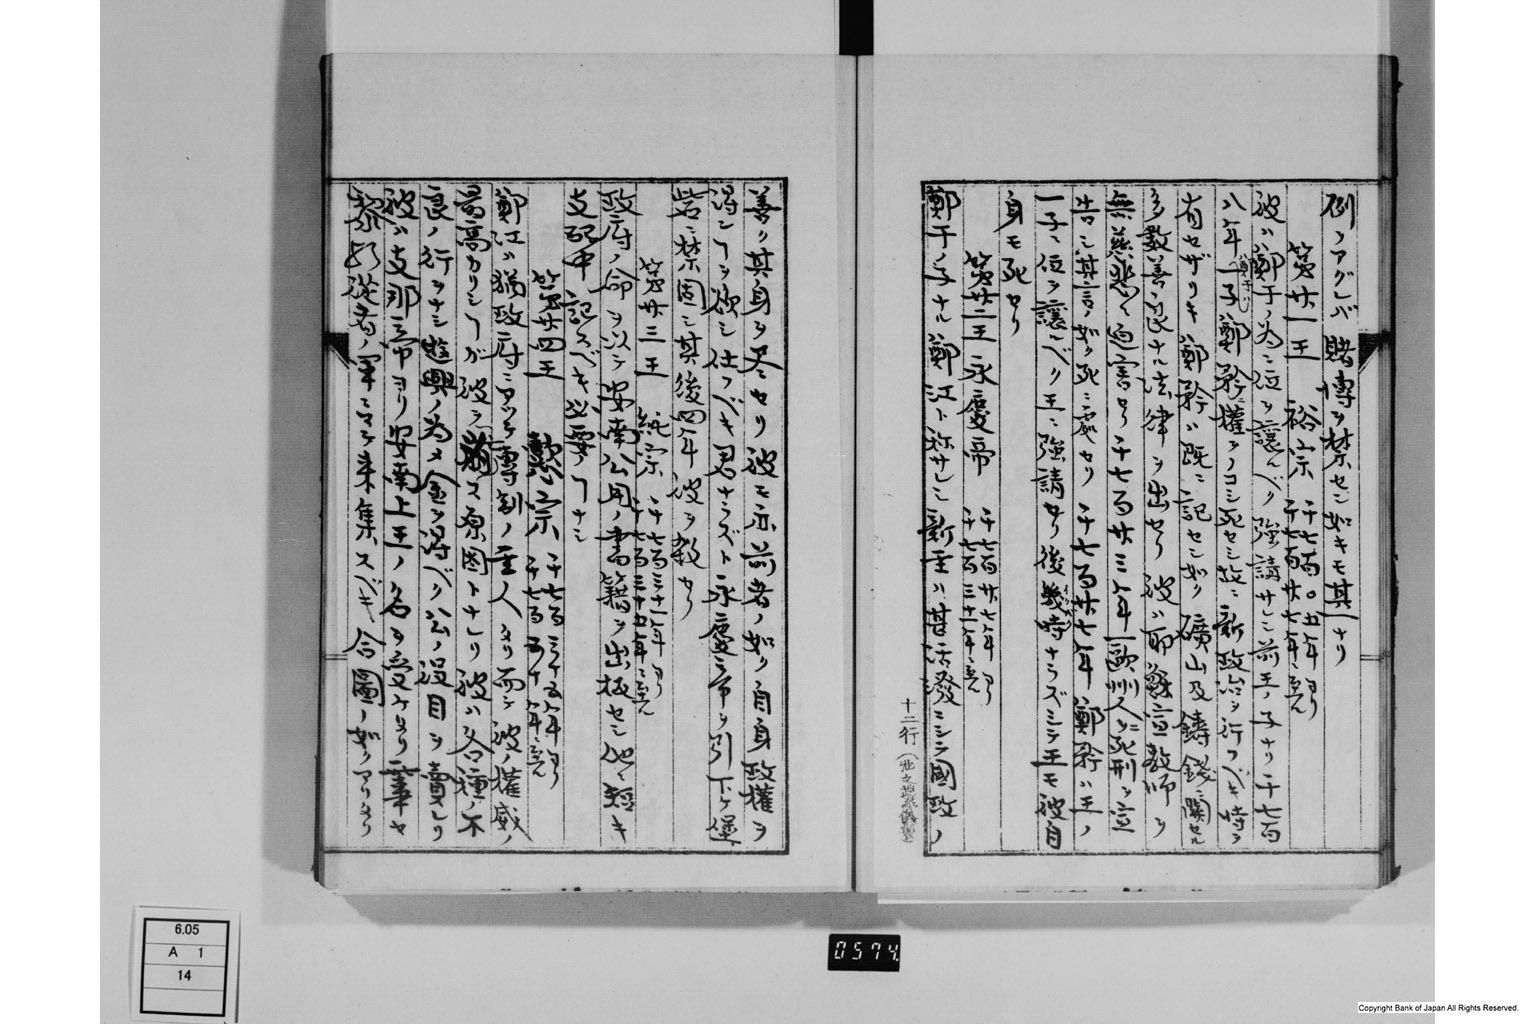 例ノアグレバ賭博ヲ禁セン如キモ其一ナリ
第廿一王 裕宗 千七百〇五年ヨリ千七百廿七年ニ至ル
彼ハ鄭干ノ為ニ位ヲ譲ルベク強請サレシ前王ノ子ナリ千七百
八年一子鄭棡ニ権ヲノコシ死セシ故ニ新政治ヲ行フベキ時ヲ
有セザリキ鄭 ハ既ニ記セシ如ク礦山及鋳銭ニ関セル
多数善良ナル法律ヲ出セリ彼ハ耶蘇宣教師ヲ
無慈悲ニ迫害セリ千七百廿三年一欧州人ヲ死刑ヲ宣
告シ其言ノ如ク死ニ処セリ千七百廿七年鄭 ハ王ノ
一子ニ位ヲ譲ルベク王ニ強請セリ後幾時ナラズシテ王モ彼自
身モ死セリ
第廿二王 永慶帝 千七百廿七年ヨリ千七百三十一年ニ至ル
鄭干ノ子ナル鄭江ト称サレシ新主ハ甚活溌ニシテ國政ノ
十二行
善ク其身ヲ尽セリ彼モ亦前者ノ如ク自身政権ヲ
得ンヿヲ欲シ仕フベキ君ナラズト永慶帝ヲ引下ケ堡
砦ニ禁固シ其後四年彼ヲ殺セリ
第廿三王 純宗 千七百三十一年ヨリ千七百三十五年ニ至ル
政府ノ命ヲ以テ安南公用ノ書籍ヲ出板セシ他ニ短キ
支配中記スベキ必要ノヿナシ
第廿四王 懿宗 千七百三十五年ヨリ千七百四十年ニ至ル
鄭江ハ猶政府ニアツテ専制ノ主人タリ而シテ彼ノ権威ノ
最高カリシヿガ彼ヲ滅ス原因トナレリ彼ハ各種ノ不
良ノ行ヲナシ遊興ノ為メ金ヲ得ベク公ノ役目ヲ賣レリ
彼ハ支那帝ヨリ安南上王ノ名ヲ受ケタリ 事ヤ
従者ノ軍ニマデ来集スベキ合圖ノ如クアリタリ
6.05
A 1
14
0574
Copyright Bank of Japan All Rights Reserved.